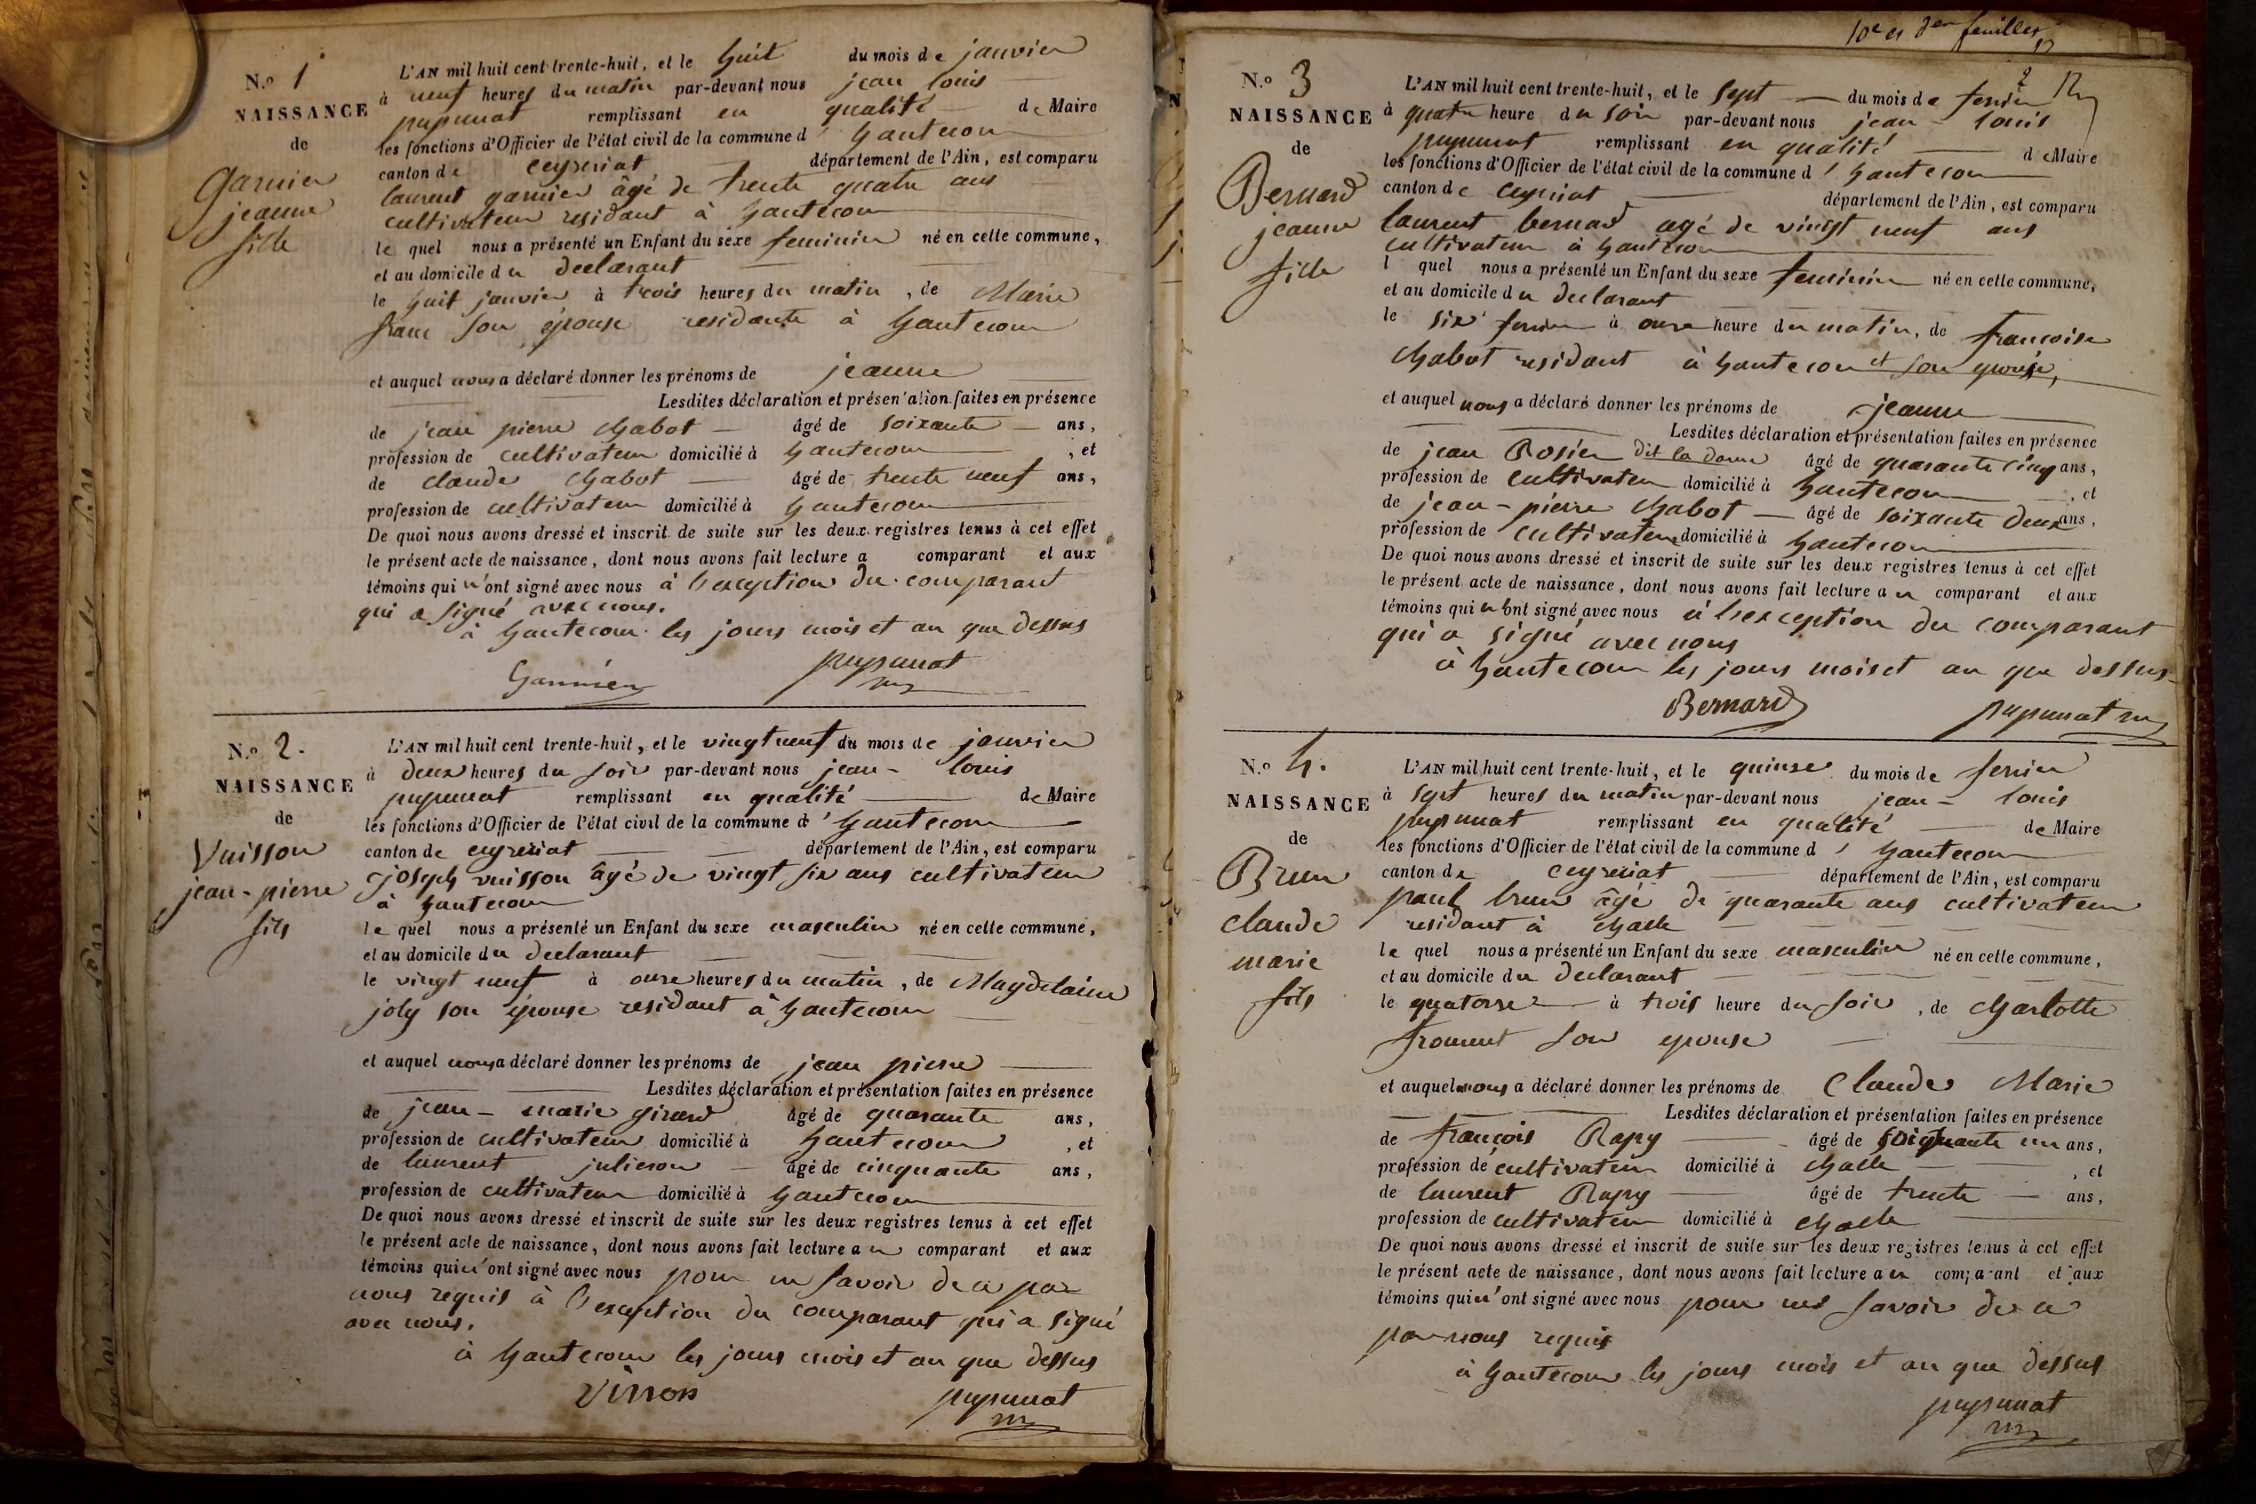 N.º 1
NAISSANCE
de
Garnier
jeanne
fille
L'AN mil huit cent trente-huit, et le huit du mois de janvier
à neuf heures du matin par-devant nous jean louis
pupunat remplissant en qualité de Maire
les fonctions d'Officier de l'état civil de la commune d' hautecour
canton de ceyzeriat département de l'Ain, est comparu
laurent garnier âgé de trente quatre ans
cultivateur residant à hautecour
le quel nous a présenté un Enfant du sexe feminin né en cette commune,
et au domicile du declarant
le huit janvier à trois heures du matin, de Marie
franc son épouse residante à hautecour
et auquel nous a déclaré donner les prénoms de jeanne
Lesdites déclaration et présentation faites en présence
de jean pierre chabot âgé de soixante ans,
profession de cultivateur domicilié à hautecour, et
de claude chabot âgé de trente neuf ans,
profession de cultivateur domicilié à hautecour
De quoi nous avons dressé et inscrit de suite sur les deux registres tenus à cet effet
le présent acte de naissance, dont nous avons fait lecture a comparant et aux
témoins qui n'ont signé avec nous à l'exception du comparant
qui a signé avec nous.
à hautecour les jours mois et an que dessus
Garnier pupunat
N.º 2.
NAISSANCE
de
Vuisson
jean-pierre
fils
L'AN mil huit cent trente-huit, et le vingt neuf du mois de janvier
à deux heures du soir par-devant nous jean-louis
pupunat remplissant en qualité de Maire
les fonctions d'Officier de l'état civil de la commune d' hautecour
canton de ceyzeriat département de l'Ain, est comparu
joseph vuisson âgé de vingt six ans cultivateur
à hautecour
le quel nous a présenté un Enfant du sexe masculin né en cette commune,
et au domicile du declarant
le vingt neuf à onze heures du matin, de Magdelaine
joly son épouse residant à hautecour
et auquel nous a déclaré donner les prénoms de jean pierre
Lesdites déclaration et présentation faites en présence
de jean-marie girard âgé de quarante ans,
profession de cultivateur domicilié à hautecour, et
de laurent julieron âgé de cinquante ans,
profession de cultivateur domicilié à hautecour
De quoi nous avons dressé et inscrit de suite sur les deux registres tenus à cet effet
le présent acte de naissance, dont nous avons fait lecture au comparant et aux
témoins qui n'ont signé avec nous pour ne savoir de ce par
nous requis à l'exception du comparant qui a signé
avec nous.
à hautecour les jours mois et an que dessus
pupunat
10e et den feuillet
2
N.º 3
NAISSANCE
de
Bernard
jeanne
fille
L'AN mil huit cent trente-huit, et le sept du mois de fevrier
à quatre heure du soir par-devant nous jean-louis
pupunat remplissant en qualité de Maire
les fonctions d'Officier de l'état civil de la commune d' hautecour
canton de ceyzeriat département de l'Ain, est comparu
laurent bernard agé de vingt neuf ans
cultivateur à hautecour
l quel nous a présenté un Enfant du sexe feminin né en cette commune,
et au domicile du declarant
le six fevrier à onze heure du matin, de francoise
chabot residant à hautecour et son épouse,
et auquel nous a déclaré donner les prénoms de jeanne
Lesdites déclaration et présentation faites en présence
de jean Rosier dit la âgé de quarante cinq ans,
profession de cultivateur domicilié à hautecour, et
de jean-pierre chabot âgé de soixante deux ans,
profession de cultivateur domicilié à hautecour
De quoi nous avons dressé et inscrit de suite sur les deux registres tenus à cet effet
le présent acte de naissance, dont nous avons fait lecture au comparant et aux
témoins qui n'ont signé avec nous à l'exception du comparant
qui a signé avec nous
à hautecour les jours mois et an que dessus
Bernard pupunat
N.º 4.
NAISSANCE
de
Brun
claude
marie
fils
L'AN mil huit cent trente-huit, et le quinze du mois de fevrier
à sept heures du matin par-devant nous jean-louis
pupunat remplissant en qualité de Maire
les fonctions d'Officier de l'état civil de la commune d' hautecour
canton de ceyzeriat département de l'Ain, est comparu
paul brun âgé de quarante ans cultivateur
residant à challe
le quel nous a présenté un Enfant du sexe masculin né en cette commune,
et au domicile du declarant
le quatorze à trois heure du soir, de charlotte
froment son epouse
et auquel nous a déclaré donner les prénoms de Claude Marie
Lesdites déclaration et présentation faites en présence
de françois Rapy âgé de soixante un ans,
profession de cultivateur domicilié à challe, et
de laurent Rapy âgé de trente ans,
profession de cultivateur domicilié à challe
De quoi nous avons dressé et inscrit de suite sur les deux registres tenus à cet effet
le présent acte de naissance, dont nous avons fait lecture au comparant et aux
témoins qui n'ont signé avec nous pour ne savoir de ce
par nous requis
à hautecour les jours mois et an que dessus
pupunat